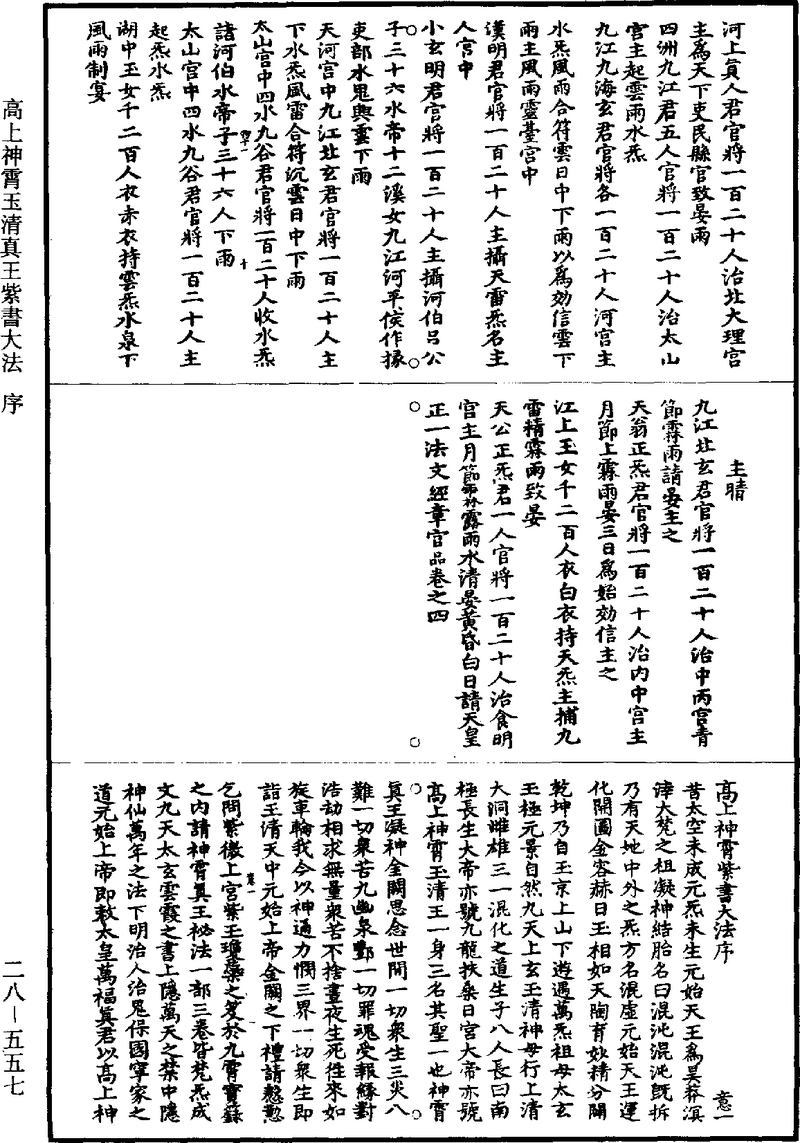 河上真人君官將一百二十人治北大理宮
主爲天下吏民縣官致晏雨
四洲九江君五人官將一百二十人治太山
宮主起雲雨水炁
九江九海玄君官將各一百二十人河宮主
水炁風雨合符雲日中下雨以爲効信雲下
雨主風雨靈臺宮中
漢明君官將一百二十人主攝天雷炁名主
人宮中
小玄明君官將一百二十人主攝河伯呂公
子三十六水帝十二溪女九江河平侯作掾
吏部水鬼輿雲下雨
天河宮中九江北玄君官將一百二十人主
下水炁風雷合符沉雲日中下雨
太山宮中四水九谷君官將一百二十人收水炁
諸河伯水帝子三十六人下雨
太山宮中四水九谷君官將一百二十人主
起炁水炁
湖中玉女千二百人衣赤衣持雲炁水泉下
風雨制宴
主晴
九江北玄君官將一百二十人治中丙宮青
節霖雨請晏主之
天翁正炁君官將一百二十人治內中宮主
月節上霖雨晏三日爲始効信主之
江上玉女千二百人衣白衣持天炁主捕九
雷精霖雨致晏
天公正炁君一人官將一百二十人治食明
宮主月節霖露雨水清晏黃昏白日請天皇
正一法文經章官品卷之四
高上神霄紫書大法序
意一
昔太空未成元炁未生元始天王爲昊莽溟
涬大梵之祖凝神結胎名曰混沌混沌既拆
乃有天地中外之炁方名混虛元始天王運
化開圖金容赫日玉相如天陶育妙精分闢
乾坤乃自玉京上山下遊遇萬炁祖母太玄
玉極元景自然九天上玄玉清神母行上清
大洞雌雄三一混化之道生子八人長曰南
極長生大帝亦號九龍扶桑日宮大帝亦號
高上神霄玉清王一身三名其聖一也神霄
真王凝神金闕思念世間一切衆生三災八
難一切衆苦九幽泉酆一切罪魂受報緣對
浩劫相求無量衆苦不捨晝夜生死往來如
旋車輪我今以神通力憫三界一切衆生即
詣玉清天中元始上帝金闕之下禮請懃懃
乞問紫微上宮紫玉瓊蘂之笈於九霄寶籙
之內請神霄真王祕法一部三卷皆梵炁成
文九天太玄雲霞之書上隱萬天之禁中隱
神仙萬年之法下明治人治鬼保國寧家之
道元始上帝即敕太皇萬福真君以高上神
高上神霄玉清真王紫書大法 序
二八—五五七